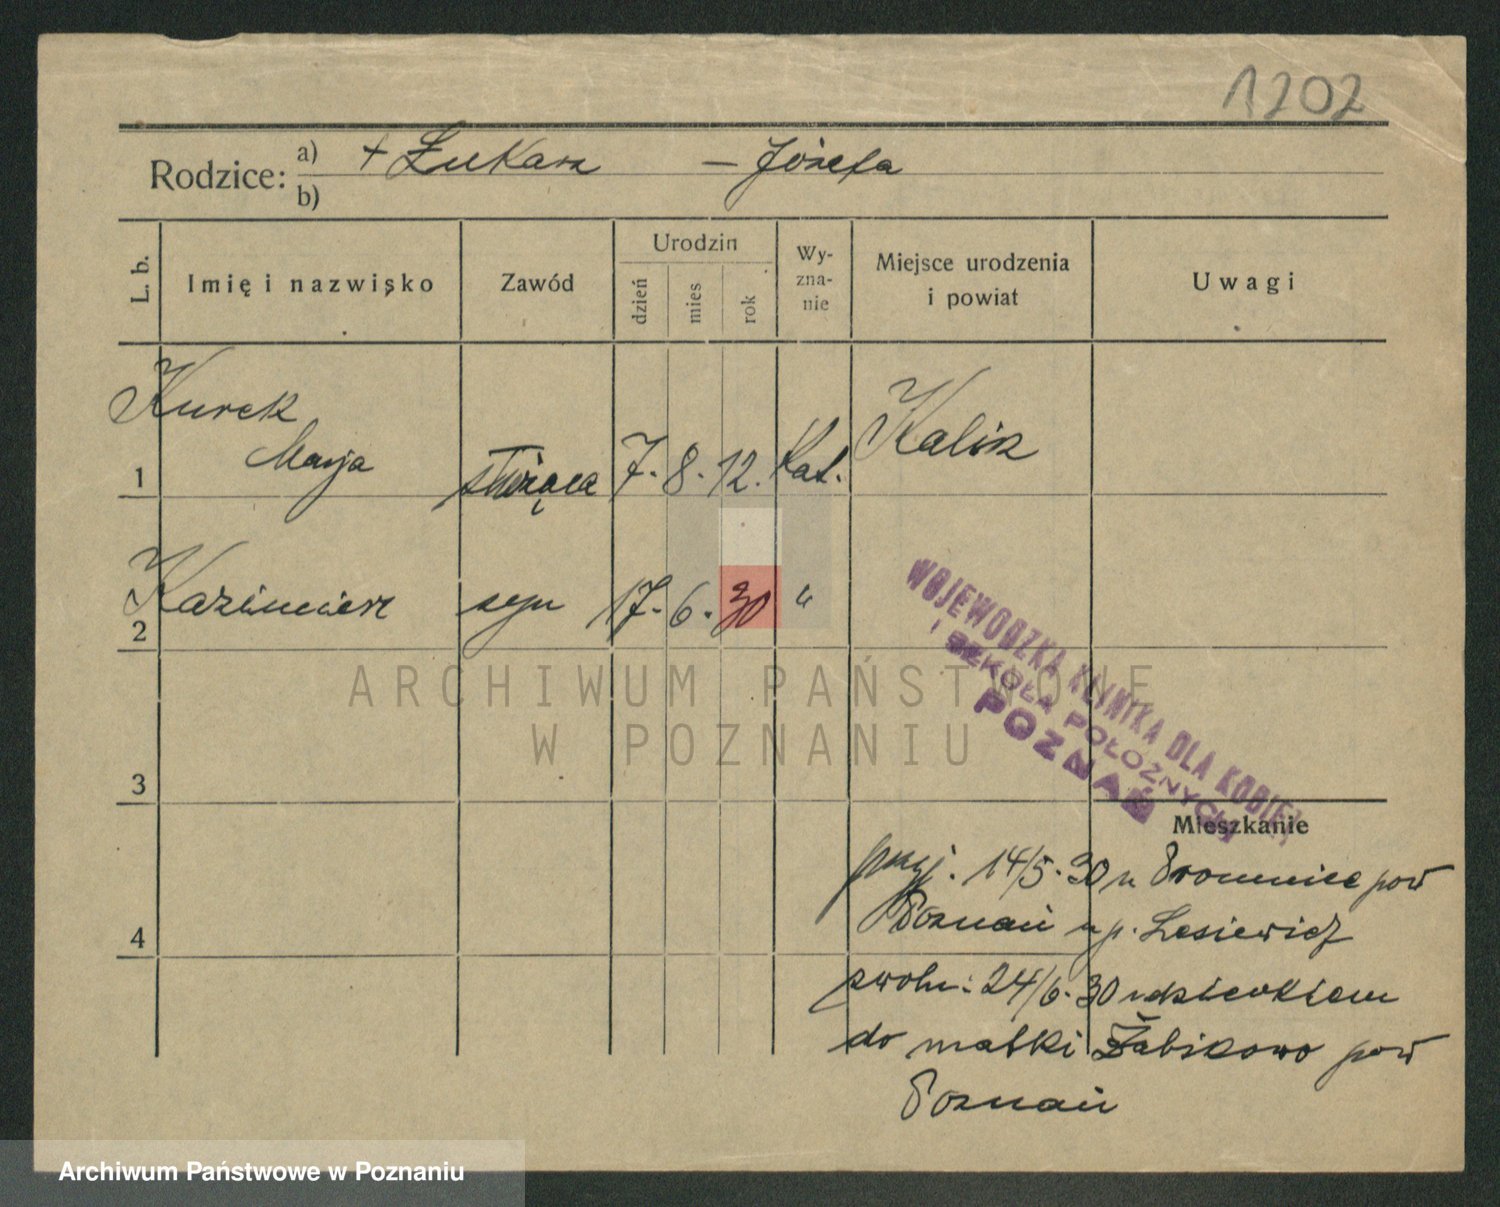 1202
Rodzice: a) + Łukasz – Józefa
b)
L. b. Imię i nazwisko Zawód Urodzin dzień mies rok Wy-zna-nie Miejsce urodzenia i powiat Uwagi
Kurek
1 Marja służąca 7. 8. 12. Kat. Kalisz
2 Kazimierz syn 17. 6. 30 "
WOJEWÓDZKA KLINIKA DLA KOBIET
i SZKOŁA POŁOŻNYCH
POZNAŃ
ARCHIWUM PAŃSTWOWE
W POZNANIU
3
Mieszkanie
przyj. 14/5. 30 z Promnice pow
4 Poznań u p. Lesiewicz
zwoln: 24/6. 30 z dzieckiem
do matki Żabikowo pow
Poznań
Archiwum Państwowe w Poznaniu